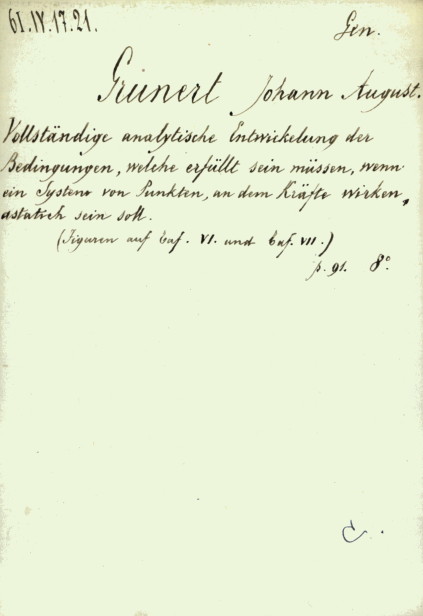 61.IV.17.21.
Gen.
Grunert Johann August.
Vollständige analytische Entwickelung der
Bedingungen, welche erfüllt sein müssen, wenn
ein System von Punkten, an dem Kräfte wirken,
astatisch sein soll.
(Figuren auf Taf. VI. und Taf. VII.)
p. 91. 8°.